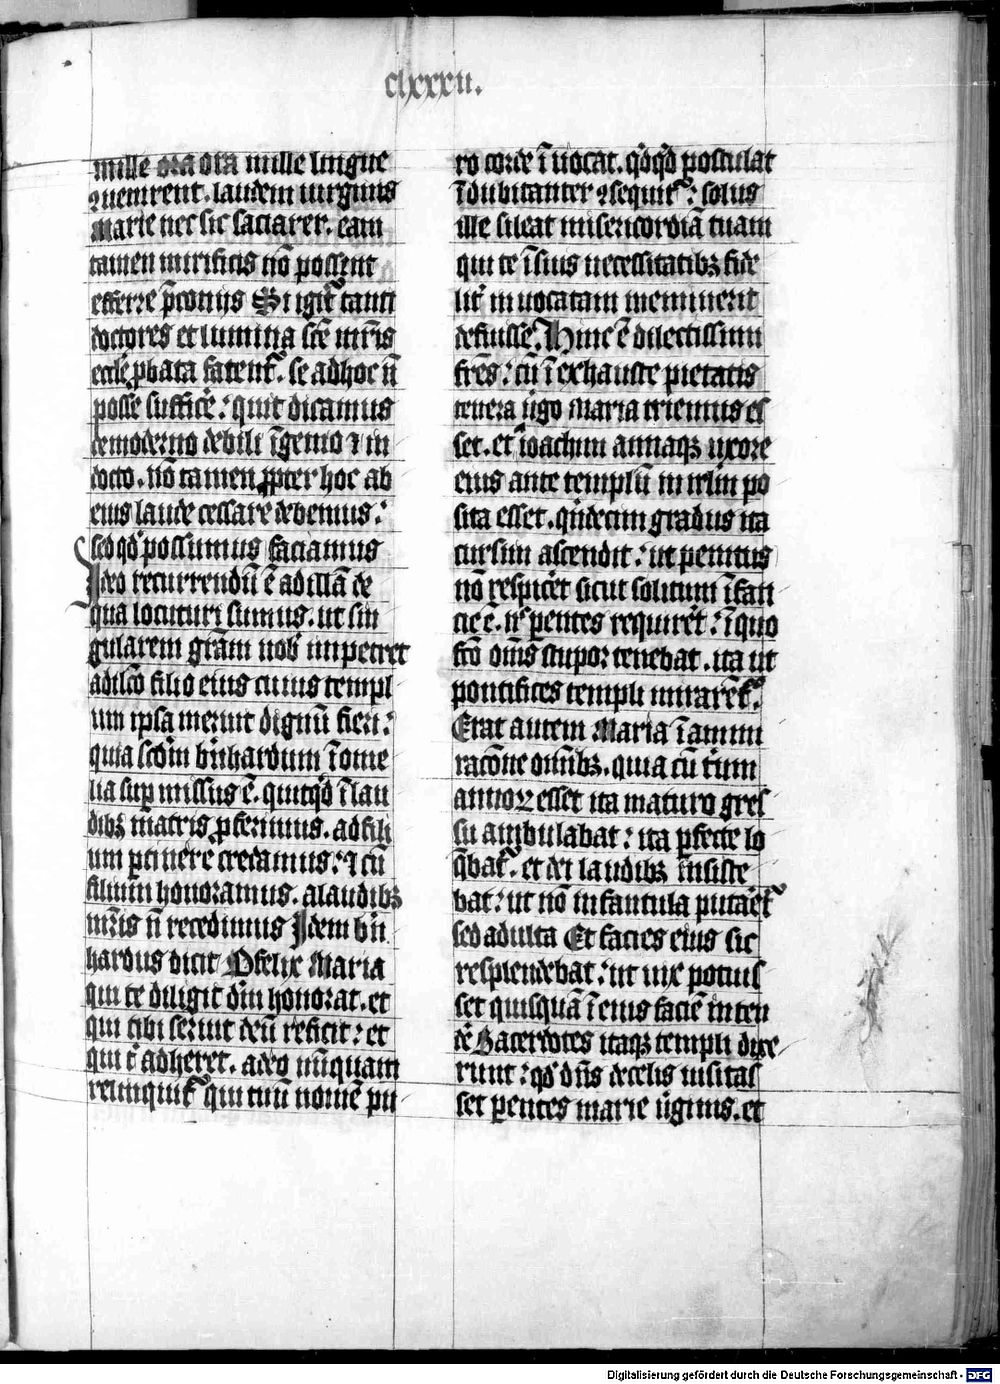 clxxxii.
mille ora ora mille lingue
ꝯuenirent. laudem uirginis
marie nec sic faciarēt. eam
tamen mirificis nō possent
efferre p̄conijs Si igit᷑ tanti
doctores et lumina scē mr̄is
eccl̄e ꝓbata fatent᷑. se ad hoc n̄
posse sufficē: quit dicamus
de moderno debili īgenio ⁊ in
docto. nō tamen ꝓpter hoc ab
eius laude cessare debemus:
sed qd̄ possumus faciamus
Ideo recurrendū ē ad illā de
qua locuturi sumus. ut sin
gularem grām nob̄ impetret
a dilc̄o filio eius cuius templ
um ipsa meruit dignū fieri:
quia scd̄m bn̄hardum ī ome
lia sup missus ē. quicqd̄ ī lau
dibꝫ matris ꝓferimus. ad fili
um ꝑtinere credamus: ⁊ cū
filium honoramus. a laudibꝫ
mr̄is n̄ recedimus Idem bn̄
hardus dicit O felix Maria
qui te diligit dm̄ honorat. et
qui tibi seruit deū reficit: et
qui t̄ adheret. a deo nūquam
relinquit᷑ qui tuū nomē pu
ro corde īuocat. qd̄qd̄ postulat
īdubitanter ꝯsequit᷑: solus
ille sileat misericordiā tuam
qui te ī suis necessitatibꝫ fide
lit̄ inuocatam meminerit
defuisse. Hinc ē dilectissimi
frēs: cū īexhauste pietatis
tenera ūgo maria triemus es
set. et ioachim annaqꝫ uxore
eius ante templū in irlm̄ po
sita esset. qn̄decim gradus ita
cursim ascendit: ut penitus
nō respicēt sicut solitum ē īfan
cie ē. n̄ ꝑentes requirēt: ī quo
fcō om̄s stupor tenebat. ita ut
pontifices templi mirarēt᷑.
Erat autem Maria ī ammi
racōne om̄ibꝫ. quia cū t̄um
annoꝝ esset ita maturo gres
su ambulabat: ita ꝑfecte lo
q̄bat᷑. et dei laudibꝫ insiste
bat: ut nō infantula putaēt᷑
sed adulta Et facies eius sic
resplendebat: ut uix potuis
set quisquā ī eius faciē inten
dē Sacerdotes itaqꝫ templi dixe
runt: qd̄ dn̄s de celis uisitas
set ꝑentes marie ūginis. et
Digitalisierung gefördert durch die Deutsche Forschungsgemeinschaft - DFG